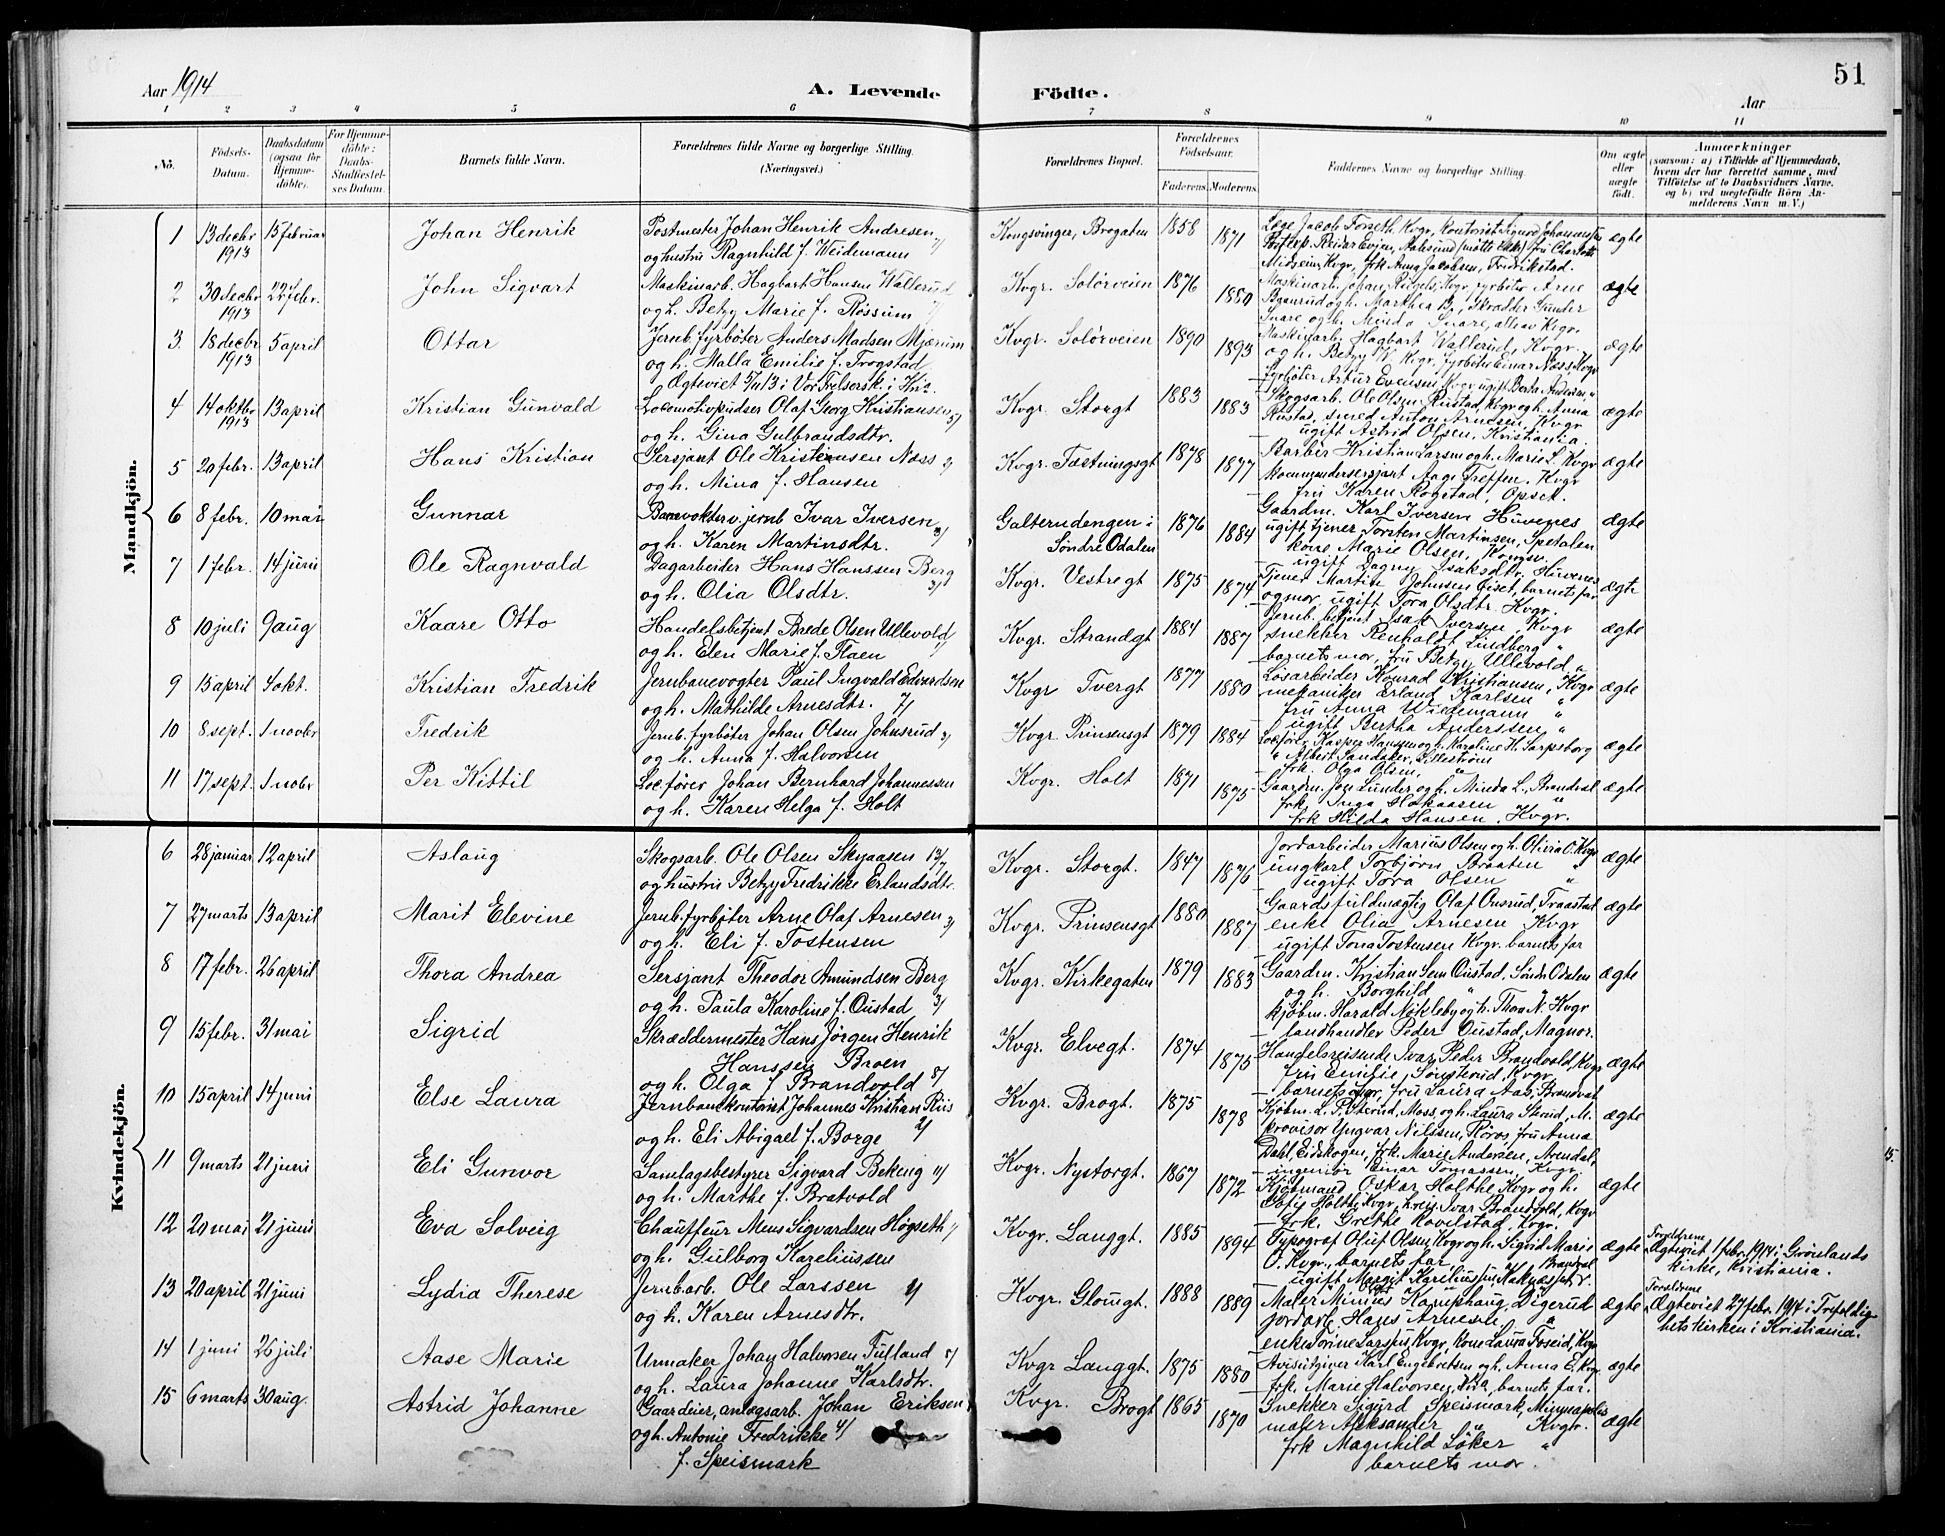 51
Aar 1914
A. Levende Födte.
Aar
1 2 3 4 5 6 7 8 9 10 11
No.
Födsels-Datum.
Daabsdatum (ogsaa for Hjemmedöbte).
For Hjemmedöbte: Daabs-Stadfæstelses Datum.
Barnets fulde Navn.
Forældrenes fulde Navne og borgerlige Stilling. (Næringsvei.)
Forældrenes Bopæl.
Forældrenes Födselsaar.
Faderens. Moderens.
Faddernes Navne og borgerlige Stilling.
Om ægte eller uægte födt.
Anmærkninger
(saasom: a) i Tilfælde af Hjemmedaab, hvem der har forrettet samme, med Tilföielse af to Daabsvidners Navne, og b) ved uegtefödte Börn Anmelderens Navn m. V.)
Mandkjön.
1 13 decbr 1913 15 februar Johan Henrik Postmester Johan Henrik Andresen
og hustru Ragnhild f. Weidemann
Kongsvinger, Brogaten 1858 1871
Læge Jacob Forseth Kvgr, Kontorist Signord Johannessen
Midseim, Kvgr, frk Anna Jacobsen, Fredrikstad.
ægte
2 30 decbr 1913 22 febr. John Sigvart Maskinarb. Hagbart Hansen Wallerud
og h. Betzy Marie f. Røssum
Kvgr. Solørveien 1876 1880
Snare og h. Minda Snare, alle av Kvgr.
ægte
3. 18 decbr 1913 5 april Ottar Jernb. fyrbøter Anders Madsen Mjærum
og h. Malla Emilie f. Trogstad
Ægteviet 5/11 13 i Vor Frelsersk. i Kra.
Kvgr. Solørveien 1890 1893
Maskinarb. Hagbart Wallerud, Kvgr.
og h. Betzy W. Kvgr, fyrbøter Einar Næss, Kvgr
fyrbøter Artur Evensen, Kvgr ugift Berta Andersen "
ægte
4 14 oktbr 1913 13 april Kristian Gunvald Locomotivpudser Olaf Georg Kristiansen 5/
og h. Gina Gulbrandsdtr.
Kvgr. Storgt 1883 1883
Skogsarb. Ole Olsen Rustad, Kvgr og h. Anna
Rustad, smed Anton Arnesen, Kvgr
ugift Astrid Olsen, Kristiania.
ægte
5 20 febr. 13 april Hans Kristian Sersjant Ole Kristiansen Næss
og h. Mina f. Hansen
Kvgr. Fæstningsgt 1878 1877
Barber Kristian Larsen og h. Marie L. Kvgr
Kommandersersjant Aage Treffen. Kvgr
fru Karen Rogstad, Opset.
ægte
6 8 febr. 10 mai Gunnar Banevokter v. jernb Ivar Iversen 3/
og h. Karen Martinsdtr.
Galterudengen i Søndre Odalen 1876 1884
Gaardm. Karl Iversen Huvenes
ugift tjener Torsten Martinsen, Spetalen
kone Marie Olsen, Kongsv.
ugift Dagny Isaksdtr. Huvenes
ægte
7 1 febr. 14 juni Ole Ragnvald Dagarbeider Hans Hanssen Berg 3/
og h. Olia Olsdtr.
Kvgr. Vestregt 1875 1874
Tjener Martin Johnsen Giset, barnets far
og mor, ugift Tora Olsdtr. Kvgr.
ægte
8 10 juli 9 aug Kaare Otto Handelsbetjent Brede Olsen Ullevold
og h. Elen Marie f. Plaen
Kvgr. Strandgt 1884 1887
Jernb. betjent Isak Iversen, Kvgr
snekker Renholdt Lindberg "
barnets mor, fru Betzy Ullevold "
ægte
9 15 april 4 okt. Kristian Fredrik Jernbanevogter Paul Ingvald Edvardsen
og h. Mathilde Arnesdtr. 7/
Kvgr Tvergt 1877 1880
Løsarbeider Konrad Kristiansen, Kvgr
mekaniker Erland Karlsen "
fru Anna Wiedemann "
ugift Bertha Anderssen "
ægte
10 8 sept. 1 novbr Fredrik Jernb. fyrbøter Johan Olsen Johnsrud
og h. Anna f. Halvorsen
Kvgr Prinsensgt 1879 1884
Locfører Kasper Hanssen og h. Karoline H. Sarpsborg
" Albert Sandaker, Lillestrøm
frk. Olga Olsen, "
ægte
11 17 sept. 1 nobr Per Kittil Locfører Johan Bernhard Johannessen
og h. Karen Helga f. Holt
Kvgr. Holt 1871 1875
Gaardm. Jon Lunder og h. Minda L., Brandval
frk. Inga Haakaasen "
frk Hilda Hansen, Kvgr.
ægte
Kvindekjön.
6 28 januar 12 april Aslaug Skogsarb. Ole Olsen Skyaasen 13/7
og hustru Betzy Fredrikke Erlandsdtr.
Kvgr. Storgt. 1847 1876
Jordarbeider Marius Olsen og h. Olivia O. Kvgr
ungkarl Torbjørn Braaten "
ugift Tora Olsen "
ægte
7 27 marts 13 april Marit Elevine Jernb. fyrbøter Arne Olaf Arnesen 3/
og h. Eli f. Tostensen
Kvgr. Prinsensgt 1880 1887
Gaardsfuldmægtig Olaf Onsrud, Traastad
enke Olia Arnesen Kvgr
ugift Tona Tostensen Kvgr. barnets far
ægte
8 17 febr. 26 april Thora Andrea Sersjant Theodor Amundsen Berg
og h. Paula Karoline f. Oustad 3/
Kvgr. Kirkegaten 1879 1883
Gaardm. Kristian Sem Oustad, Søndre Odalen
og h. Borghild "
kjøbm. Harald Nøkleby og h. Thora N. Kvgr
landhandler Peder Oustad, Magnor.
ægte
9 15 febr. 31 mai Sigrid Skræddermester Hans Jörgen Henrik
Hanssen Broen
og h. Olga f. Brandvold 8/
Kvgr. Elvegt. 1874 1875
Handelsreisende Ivar Peder Brandvold, Kvgr
fru Emilie Sønsterud Kvgr.
barnets far, fru Laura Aas, Brandval
ægte
10 15 april 14 juni Else Laura Jernbanekontorist Johannes Kristian Riis
og h. Eli Abigael f. Borge 2/
Kvgr. Brogt. 1875 1878
Kjøbm. L. P. Sterud, Moss, og h. Laura Sterud, M.
provisor Yngvar Nilssen, Røros, fru Anna
Dahl, Eidskogen, frk. Marie Andersen, Arendal,
ingeniør Einar Tomassen, Kvgr.
ægte
11 9 marts 21 juni Eli Gunvor Samlagsbestyrer Sigvard Beking
og h. Marthe f. Bratvold
Kvgr. Nystorgt. 1867 1872
Kjøbmand Oskar Holthe Kvgr og h.
Sofie Holthe Kvgr, Ivar Brandvold, Kvgr
frk. Grethe Kovelstad, Kvgr.
ægte
12 20 mai 21 juni Eva Solveig Chauffeur Mens Sigvardsen Høgseth
og h. Gulborg Kareliussen
Kvgr. Langgt. 1885 1894
Typograf Oluf Olsen, Kvgr og h. Sigrid Marie
O. Kvgr., barnets far, Brandval
ægte
Foreldrene Ægteviet 1 febr. 1914 i Grønlands
kirke, Kristiania.
13 20 april 21 juni Lydia Therese Jernbarb. Ole Larssen 4/
og h. Karen Arnesdtr.
Kvgr. Glomgt. 1888 1889
Maler Minius Kamphaug, Digerud
jordarb. Hans Arnesen "
enke Trine Larssen Kvgr, kone Laura Foseid, Kvgr
ægte
Forældrene Ægteviet 27 febr. 1914 i Trefoldig
hetskirken i Kristiania.
14 1 juni 26 juli Aase Marie Urmaker Johan Halvorsen Tulland 5/
og h. Laura Johanne Karlsdtr.
Kvgr Langgt. 1875 1880
Avisutgiver Karl Engebretsen og h. Anna E. Kvgr
frk. Marie Halvorsen, Kra, barnets far.
ægte
15 6 marts 30 aug. Astrid Johanne Gaardeier, anlægsarb. Johan Eriksen
og h. Antonie Fredrikke 4/
f. Speismark
Kvgr. Brogt 1865 1870
Snekker Sigurd Speismark, Minneapolis
maler Aleksander " Kvgr.
frk Magnhild Løker "
barnets mor.
ægte
15.